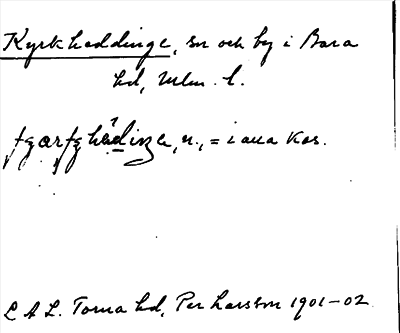 Kyrkheddinge, sn och by i Bara
hd, Mlm. l.
n., = i alla kas.
L A L. Torna hd, Per Larsson 1901–02